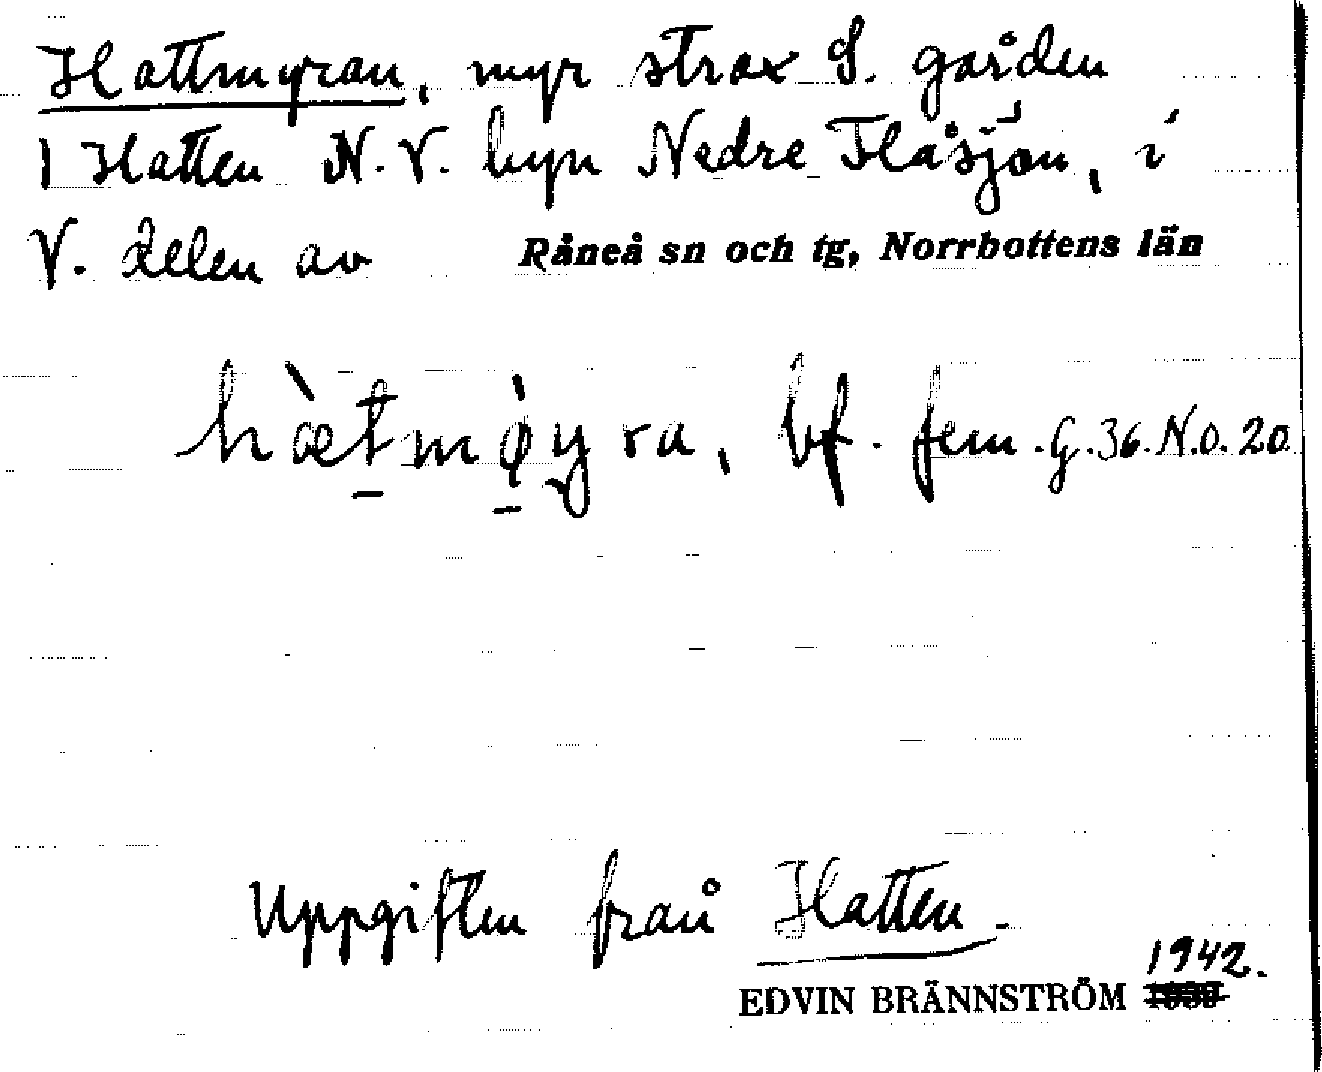 Hattmyran, myr strax S. gården
1 Hatten N.V. byn Nedre Flåsjön, i
V. delen av Råneå sn och tg, Norrbottens län
hæ̀tmø̀yra, bf. fem. G. 36. N.O. 20
Uppgiften från Hatten.
1942.
EDVIN BRÄNNSTRÖM 1939